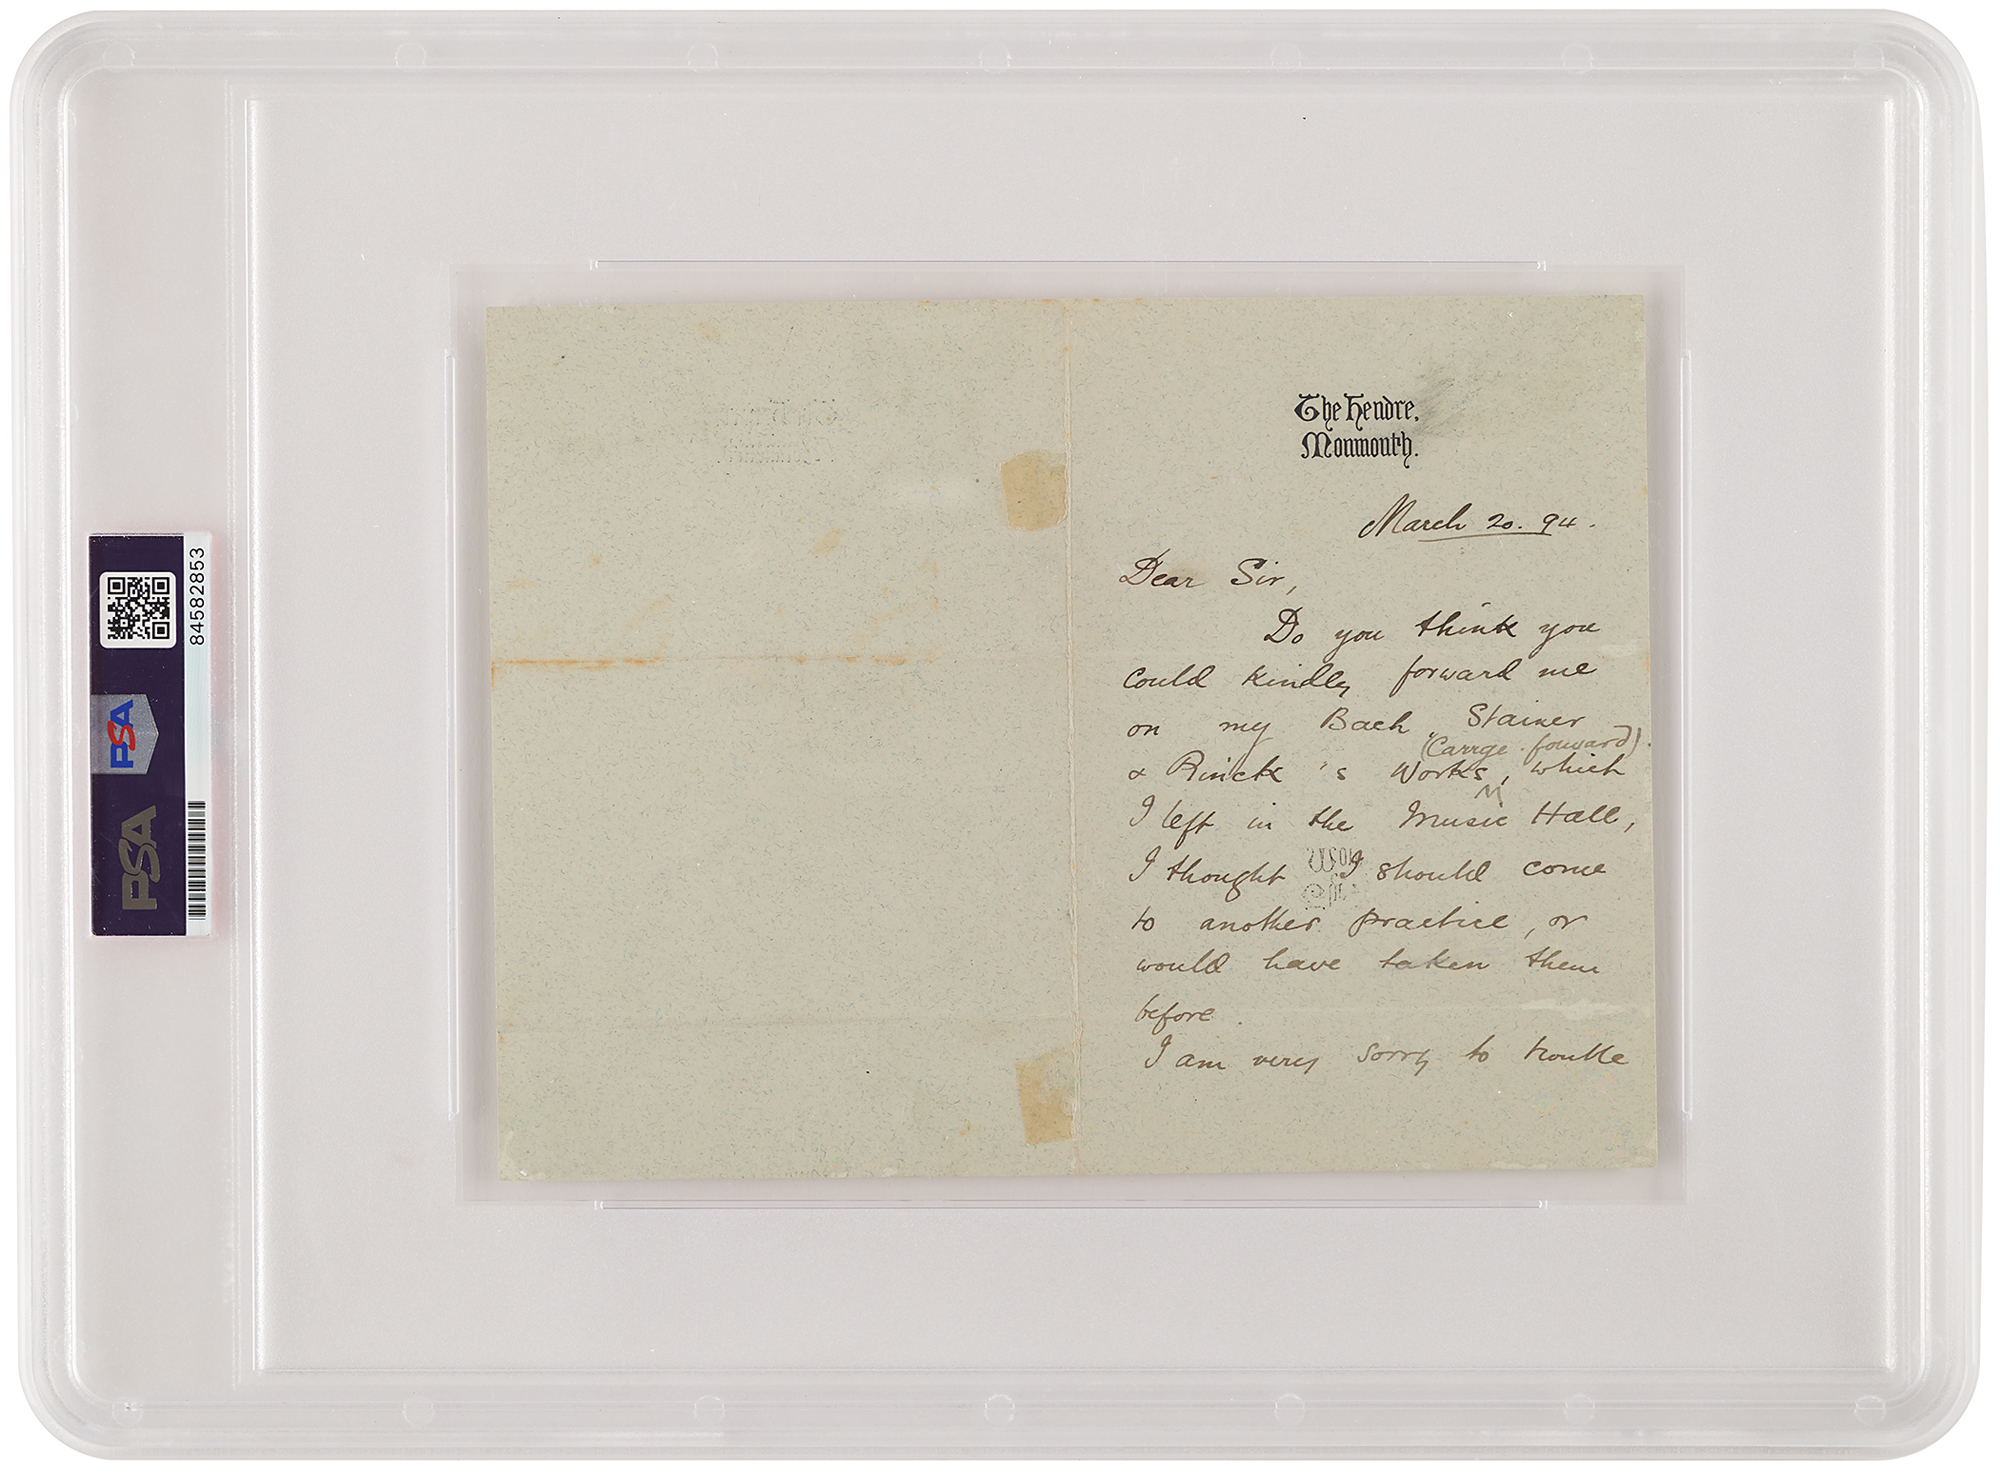 The Hendre,
Monmouth.
March 20. 94.
Dear Sir,
Do you think you
could kindly forward me
on my Bach, Stainer
(Carrge. forward)
& Rinck's Works, which
I left in the Music Hall,
I thought I should come
to another practice, or
would have taken them
before.
I am very sorry to trouble
84582853
PSA
PSA